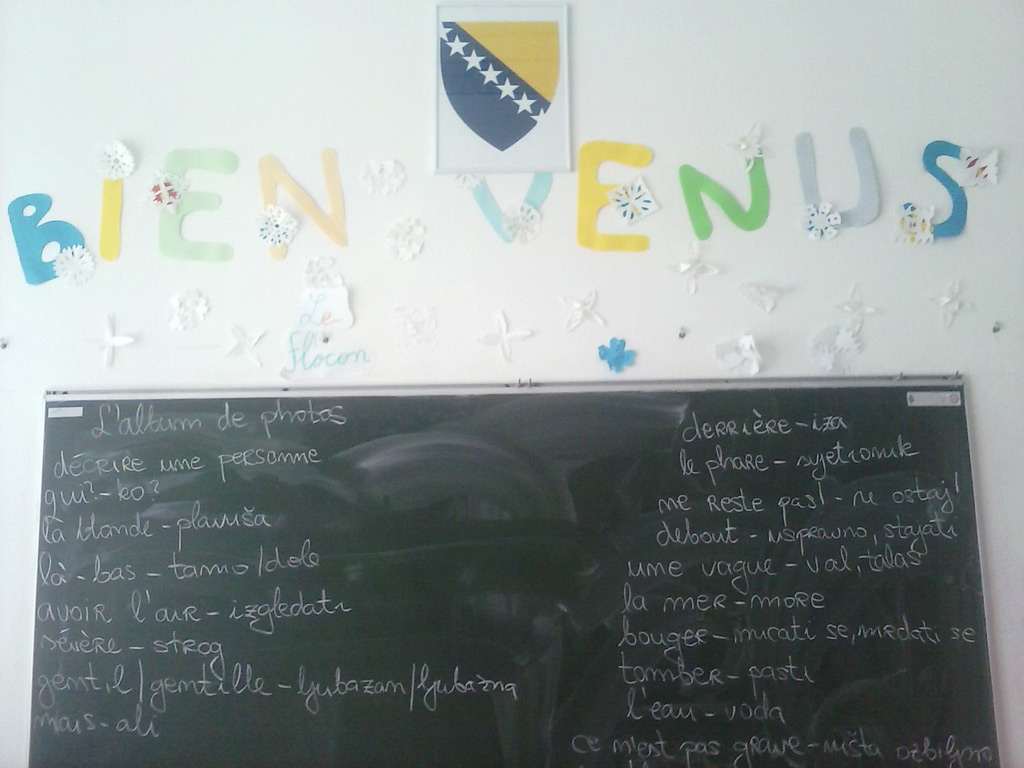 BIEN VENUS
Le
Flocon
L'album de photos
décrire une personne
qui? - ko?
la blonde - plavuša
là-bas - tamo/dole
avoir l'air - izgledati
sévère - strog
gentil/gentille - ljubazan/ljubazna
mais - ali
derrière - iza
le phare - svjetionik
ne reste pas! - ne ostaj!
debout - uspravno, stajati
une vague - val, talas
la mer - more
bouger - micati se, mrdati se
tomber - pasti
l'eau - voda
ce n'est pas grave - ništa ozbiljno